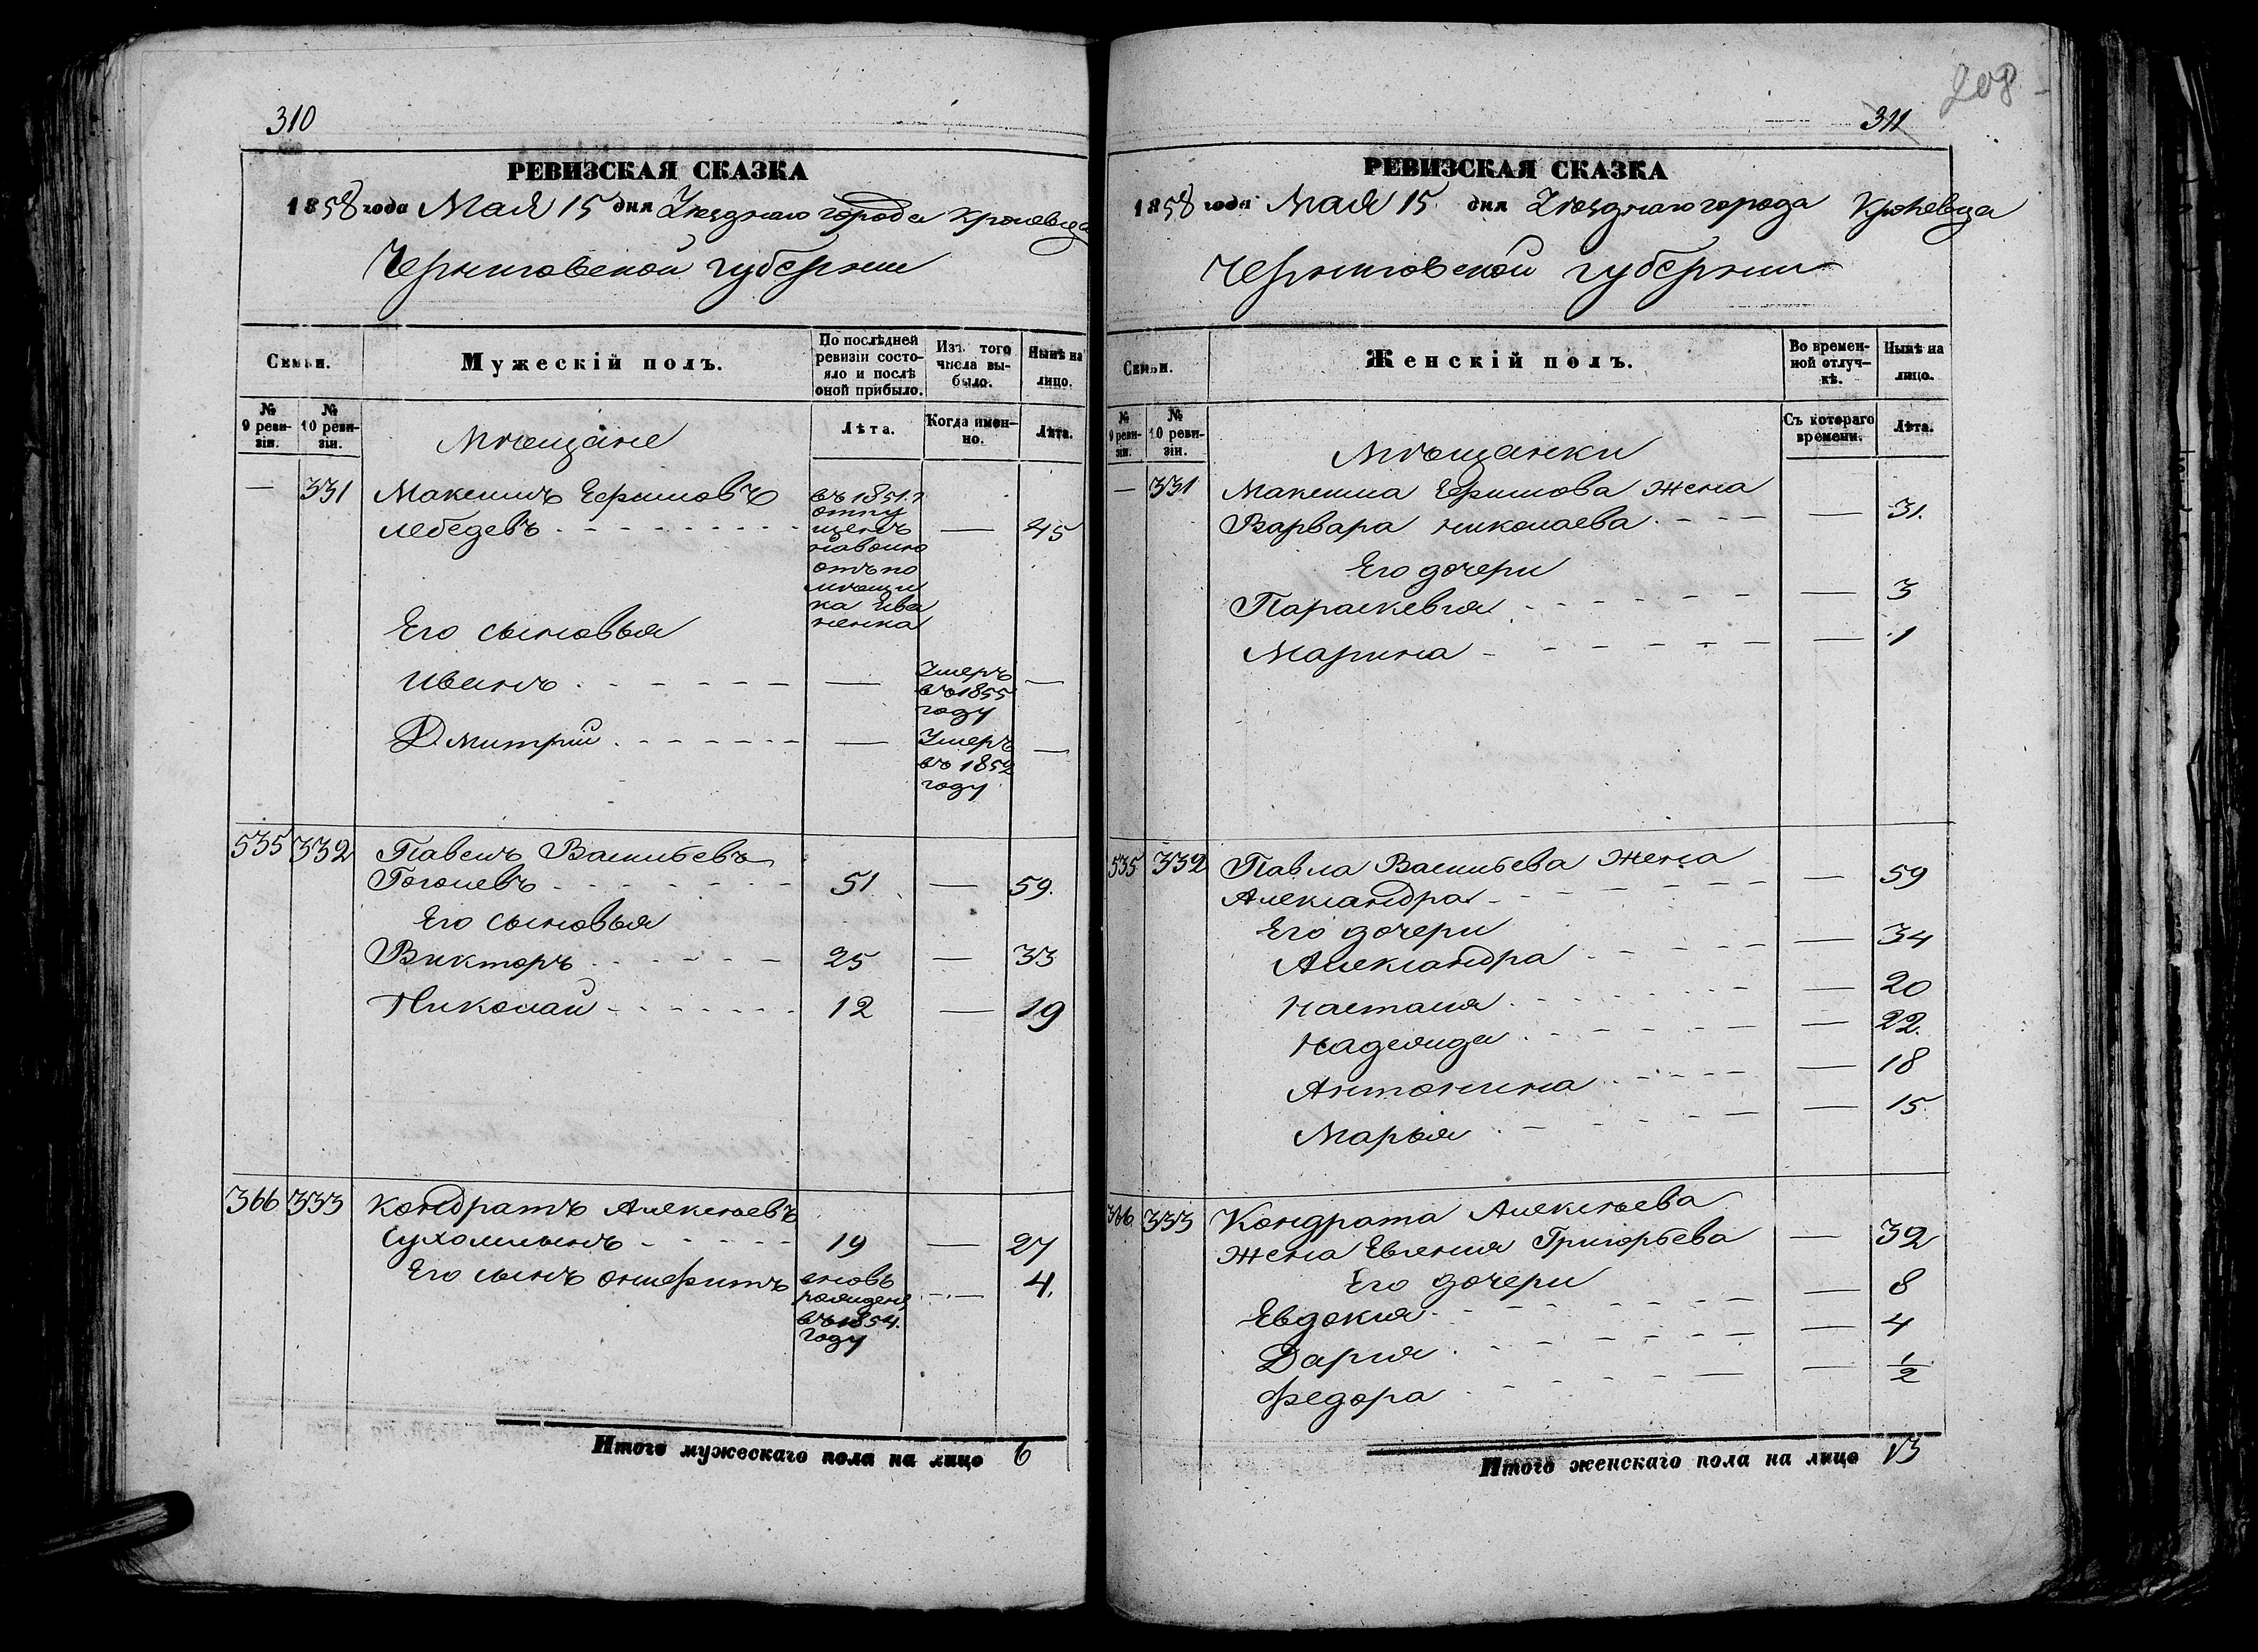 310
РЕВИЗСКАЯ СКАЗКА
1858 года Мая 15 дня Уезднаго города Кролевца
Черниговской губернии
Семьи.
Мужескій полъ.
По послѣдней
ревизіи состо-
яло и послѣ
оной прибыло.
Изъ того
числа вы-
было.
Нынѣ на
лицо.
№
9 реви-
зіи.
№
10 реви-
зіи.
Лѣта.
Когда имен-
но.
Лѣта.
Мѣщане
— 331 Максимъ Ефимовъ
Лебедевъ — 45
въ 1851 г
отпу
щенъ
наволю
отъ по
мѣщи
ка Ива
ненка
Его сыновья
Иванъ — —
Умеръ
въ 1855
году
Дмитрий — —
Умеръ
въ 1852
году
535 332 Павелъ Васильевъ
Гоголевъ 51 — 59.
Его сыновья
Викторъ 25 — 33
Николай 12 — 19
366 333 Кондратъ Алексѣевъ
Сухомлынъ 19 — 27
Его сынъ Онисифитъ — 4.
вновь
рожденъ
въ 1854.
году
Итого мужескаго пола на лицо 6
208
311
РЕВИЗСКАЯ СКАЗКА
1858 года Мая 15 дня Уѣзднаго города Кролевца
Черниговской губернии
Семьи.
Женскій полъ.
Во времен-
ной отлуч-
кѣ.
Нынѣ на
лицо.
№
9 реви-
зіи.
№
10 реви-
зіи.
Съ котораго
времени.
Лѣта.
Мѣщанки
— 331 Максима Ефимова жена
Варвара Николаева — 31.
Его дочери
Параскевия — 3
Марина — 1
535 332 Павла Васильева жена
Александра — 59
Его дочери
Александра — 34
Настасия — 20
Надежда — 22.
Антонина — 18
Марья — 15
366 333 Кондрата Алексѣева
жена Евгения Григорьева — 32
Его дочери
Евдокия — 8
Дария — 4
Федора — 1/2
Итого женскаго пола на лицо 13